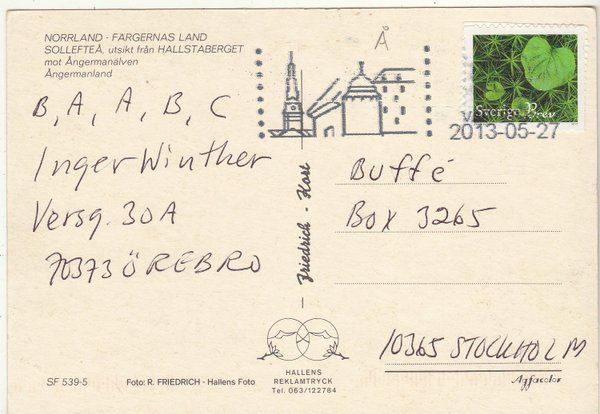 NORRLAND - FÄRGERNAS LAND
SOLLEFTEÅ, utsikt från HALLSTABERGET
mot Ångermanälven
Ångermanland
B, A, A, B, C
Inger Winther
Versg. 30A
70373 ÖREBRO
SF 539-5
Foto: R. FRIEDRICH - Hallens Foto
Friedrich - Kort
HALLENS
REKLAMTRYCK
Tel. 063/122784
Å
Sverige Brev
2013-05-27
Buffé
Box 3265
10365 STOCKHOLM
Agfacolor